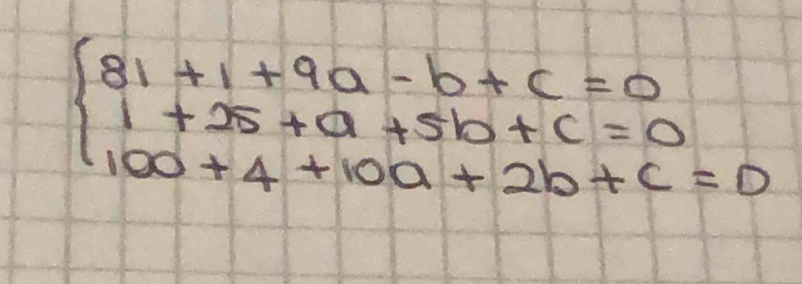 81 + 1 + 9a - b + c = 0
1 + 25 + a + 5b + c = 0
100 + 4 + 10a + 2b + c = 0